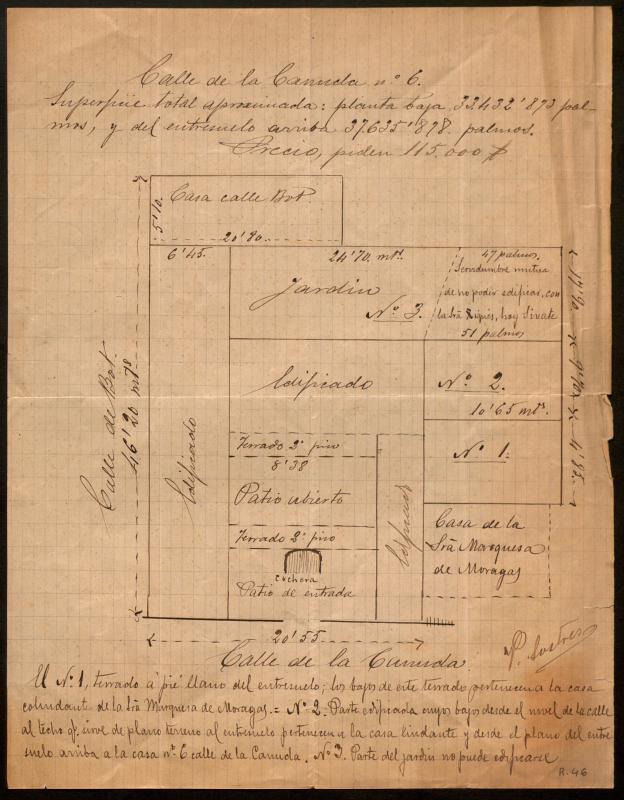 Calle de la Canuda nº 6.
Superficie total aproximada: planta baja 32432'873 pal-
mos, y del entresuelo arriba 37635'878 palmos.
Precio, piden 115.000
Casa calle Bot.
5'10.
20'80.
6'45.
24'70. mts.
47 palmos.
Servidumbre mutua
de no poder edificar, con
la Srá hoy Sivate
51 palmos
Jardin
Nº 3.
Edificado
Nº 2.
10'65 mts.
Nº 1.
Calle de Bot.
46'20 mts
Edificado
Terrado 2º piso
8'38
Patio abierto
Terrado 2º piso
Cochera
Patio de entrada
Edificado
4'85.
Casa de la
Srá Marquesa
de Moragas
20'55
Calle de la Canuda.
El Nº 1, terrado á pié llano del entresuelo; los bajos de este terrado pertenecen a la casa
colindante de la Srá Marquesa de Moragas. = Nº 2. Parte edificada cuyos bajos desde el nivel de la calle
al techo qe. sirve de plano terreno al entresuelo pertenecen a la casa lindante y desde el plano del entre
suelo arriba a la casa nº 6 calle de la Canuda. Nº 3. Parte del jardin no puede edificarse
R.46